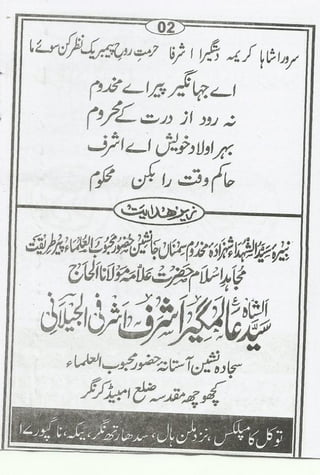 02
سرور اشاہا کریمہ دستگیرا اشرفا حرمتِ روحِ پیمبر یک نظر کن سوئے ما
اے جہانگیر پیر اے مخدوم
نہ رود از درت کے محروم
بہر اولاد خویش اے اشرف
حاکم وقت را بکن محکوم
زیرِ ھدایت
نبیرہ سید الشہداء شہزادہ مخدوم سمناں جانشین حضور محبوب العلماء پیر طریقت
مجاہد اسلام حضرت علامہ مولانا الحاج
الشاہ سید عالمگیر اشرف اشرفی الجیلانی
سجادہ نشین آستانہ حضور محبوب العلماء
کچھوچھہ مقدسہ ضلع امبیڈکر نگر
توکل کامپلکس، نزد ملن ہال، سدھارتھ نگر، ٹیکہ، ناگپور ۱۷